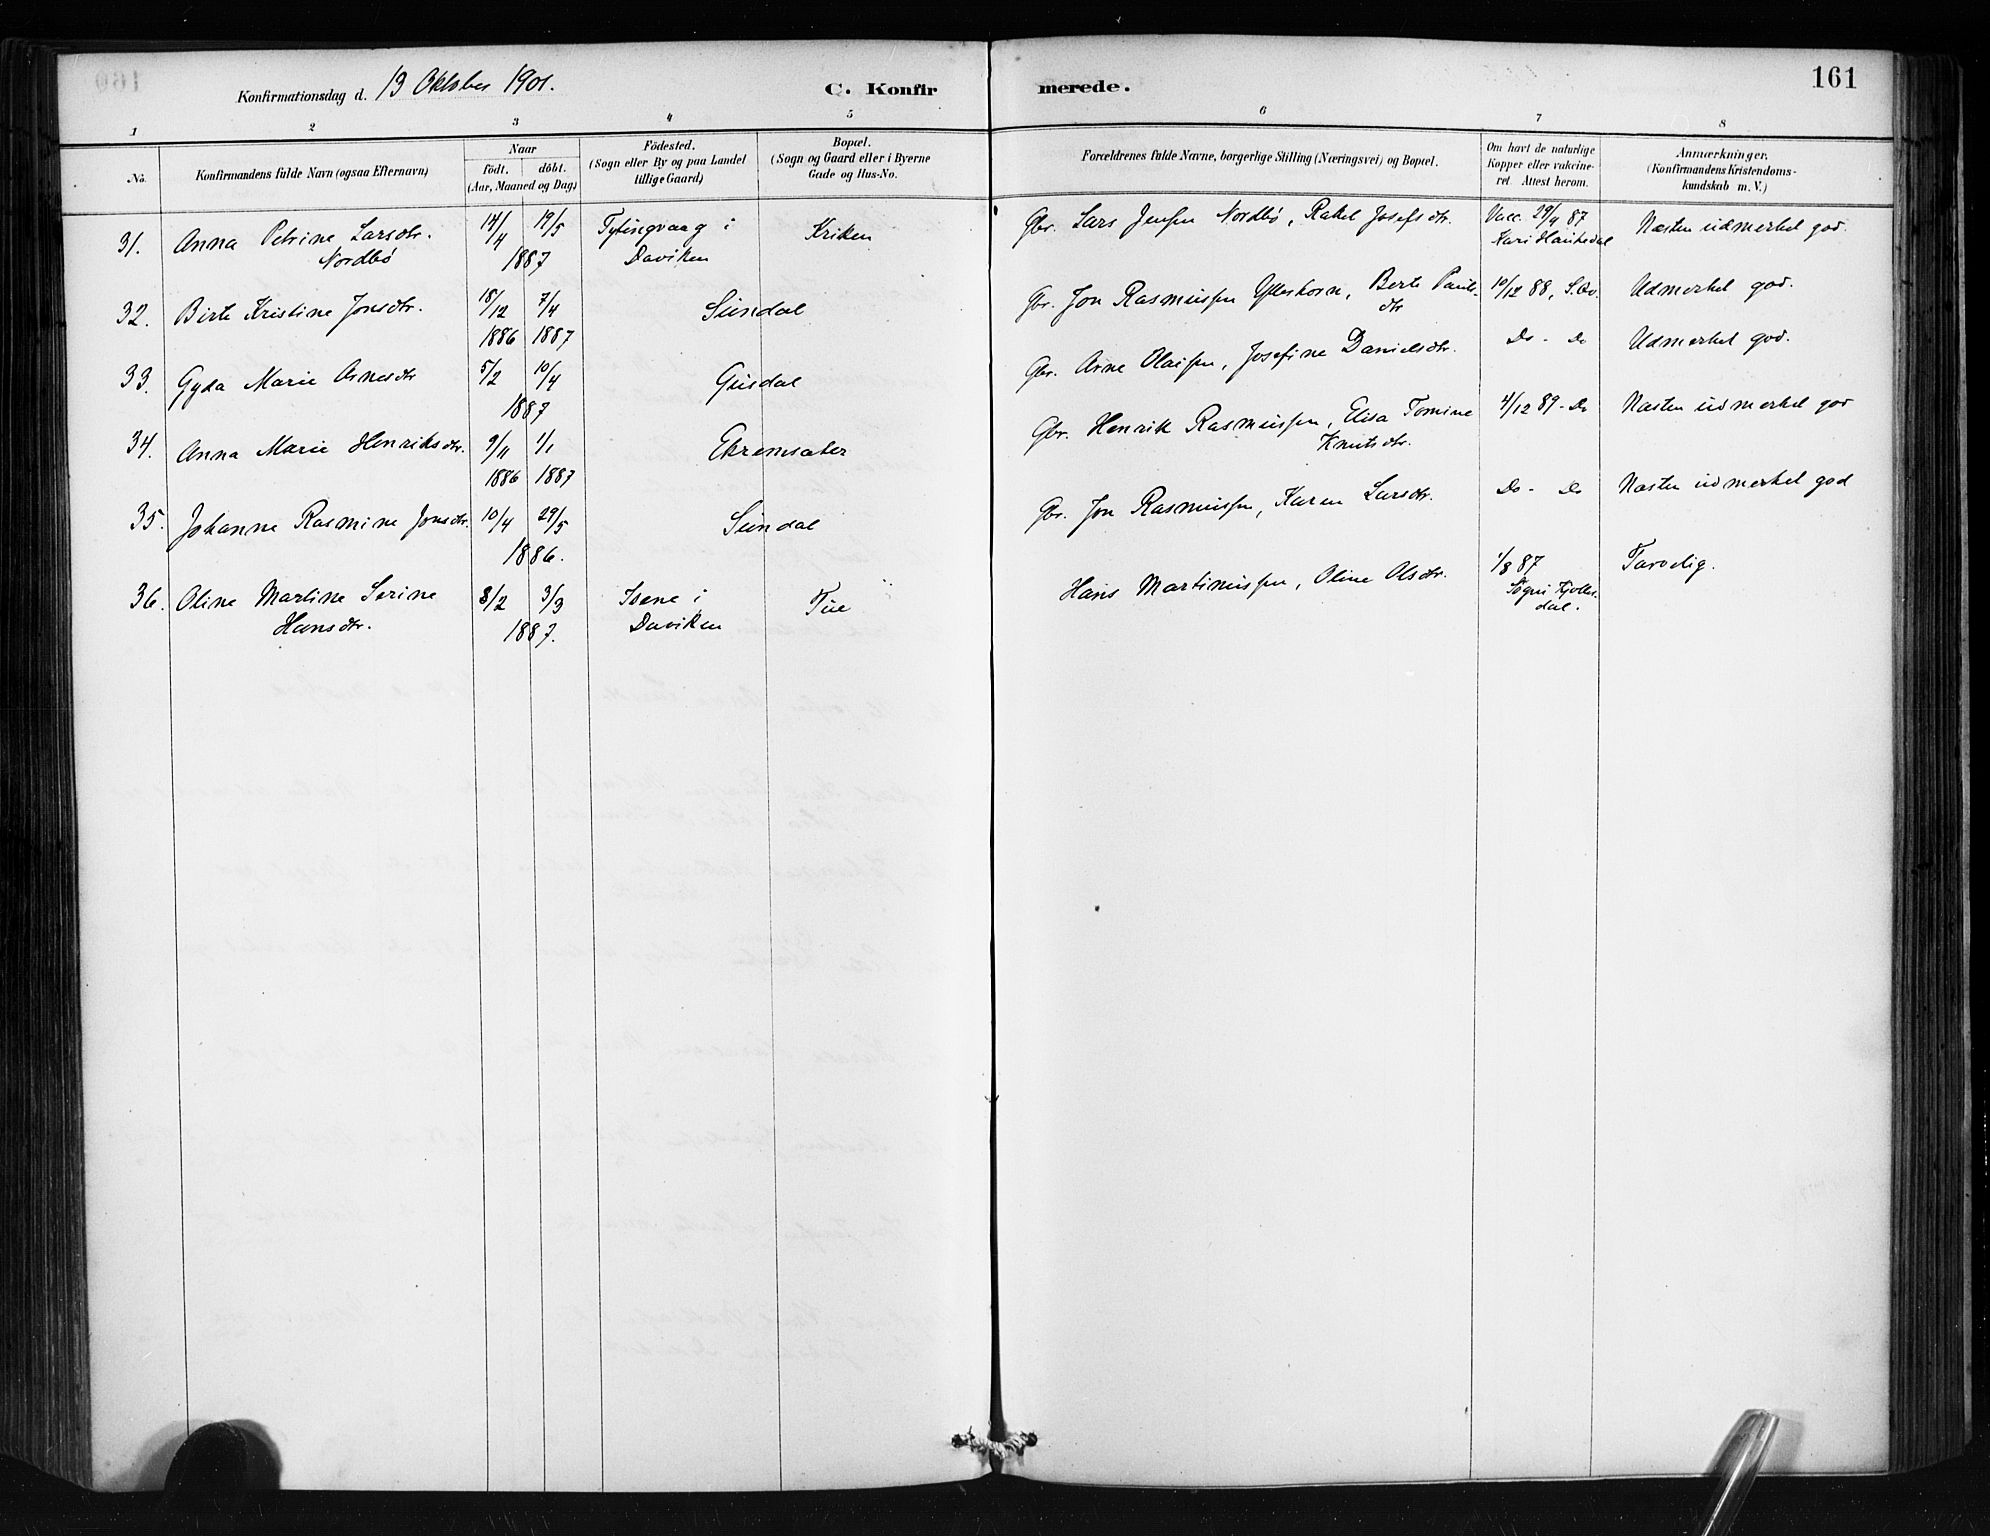 Konfirmationsdag d. 13 Oktober 1901.
C. Konfir
merede.
161
1 2 3 4 5 6 7 8
No.
Konfirmandens fulde Navn (ogsaa Efternavn)
Naar
födt. döbt.
(Aar, Maaned og Dag)
Födested.
(Sogn eller By og paa Landet
tillige Gaard)
Bopæl.
(Sogn og Gaard eller i Byerne
Gade og Hus-No.
Forældrenes fulde Navne, borgerlige Stilling (Næringsvei) og Bopæl.
Om havt de naturlige
Kopper eller vakcine-
ret. Attest herom.
Anmærkninger.
(Konfirmandens Kristendoms-
kundskab m. V.)
31. Anna Petrine Larsdtr. 14/4 19/5 Tytingvaag i Kriken Gbr. Lars Jensen Nordbø, Rakel Josefsdtr. Vacc. 29/9 87 Næsten udmerket god.
Nordbø 1887 Daviken Kari Haukedal
32. Birte Kristine Jonsdtr. 18/12 7/4 Sundal Gbr. Jon Rasmussen Ytrehorn, Berte Pauls- 10/12 88, S. Udmerket god.
dtr
1886 1887
33. Gyda Marie Arnesdtr 5/2 10/4 Gusdal Gbr. Arne Olaissen, Josefine Danielsdtr. Do - Do Udmerket god.
1887
34. Anna Marie Henriksdtr. 9/11 1/1 Ekremsæter Gbr. Henrik Rasmussen, Elisa Tomine 4/12 89 - Do Næsten udmerket god
1886 1887 Knutsdtr.
35. Johanne Rasmine Jonsdtr. 10/4 29/5 Sundal Gbr. Jon Rasmussen, Karen Larsdtr. Do - Do Næsten udmerket god
1886.
36. Oline Martine Serine 8/2 3/3 Isene i Tue Hans Martinussen, Oline Olsdtr. 1/8 87 Tarvelig.
Hansdtr. 1887. Daviken Søgni Kjølles-
dal.